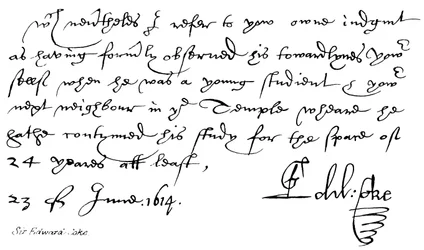 wch neutheles I refer to yow owne indgmt
as having formly observed his towardlynes yowr
self when he was a young studient & yowr
next neighbour in ye Temple wheare he
hathe contynued his study for the space of
24 yeares att least,
23 of June. 1614.
Edw: Coke
Sir Edward Coke.